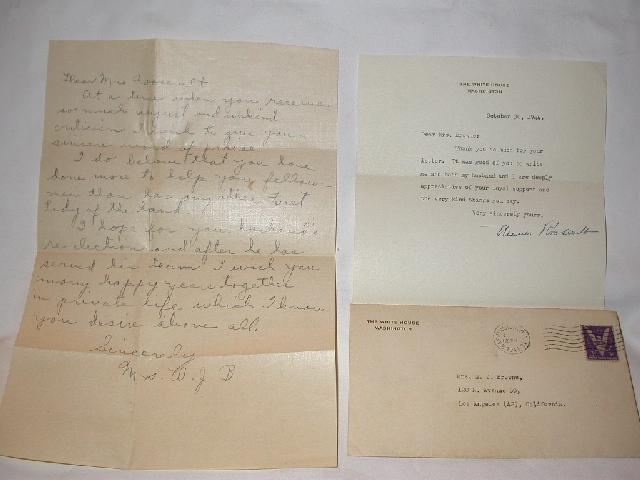 Dear Mrs Roosevelt
At a time when you receive
so much unjust and unkind
criticism I want to give you a
sincere word of praise
I do believe that you have
done more to help your fellow
men than has any other First
Lady of the land
I hope for your husband's
re-election and after he has
served his term I wish you
many happy years together
in private life which I know
you desire above all.
Sincerely
Mrs. W. J. B
THE WHITE HOUSE
WASHINGTON
October 1944.
Dear Mrs.
Thank you so much for your
letter. It was good of you to write
me and both my husband and I are deeply
appreciative of your loyal support and
the very kind things you say.
Very sincerely yours,
Eleanor Roosevelt
THE WHITE HOUSE
WASHINGTON
Mrs. J.
Los Angeles California.